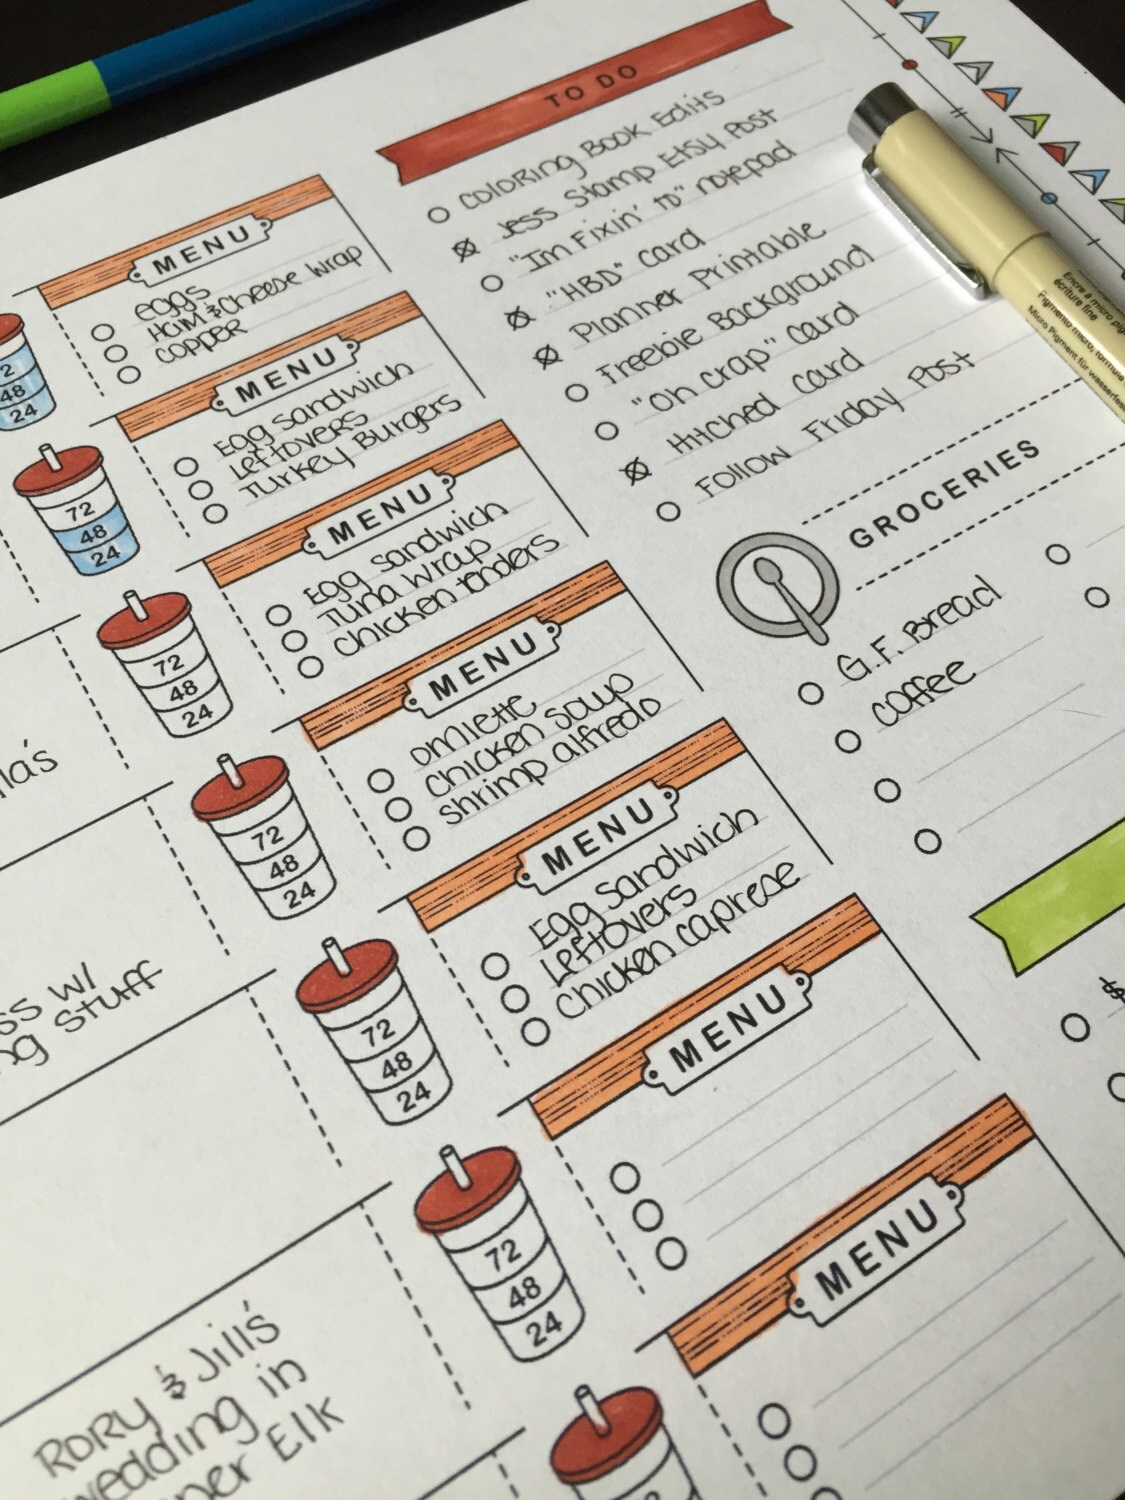 TO DO
COLORING BOOK Edits
Jess Stamp Etsy Post
"Im Fixin' to" notepad
"HBD" Card
Planner Printable
Freebie Background
"Oh Crap" Card
Hitched Card
Follow Friday Post
GROCERIES
G.F. Bread
Coffee
MENU
eggs
Ham & Cheese Wrap
Copper
2
48
24
MENU
Egg Sandwich
Leftovers
Turkey Burgers
72
48
24
MENU
Egg Sandwich
Tuna Wrap
Chicken tenders
72
48
24
MENU
Omlette
Chicken Soup
Shrimp alfredo
72
48
24
MENU
Egg Sandwich
Leftovers
Chicken Caprese
72
48
24
MENU
72
48
24
MENU
72
la's
ss w/
ng Stuff
Rory & Jill's
wedding in
per Elk
Encre à micro pig
écriture fine
Pigmento micro, formule
Micro Pigment für wasserfes
$